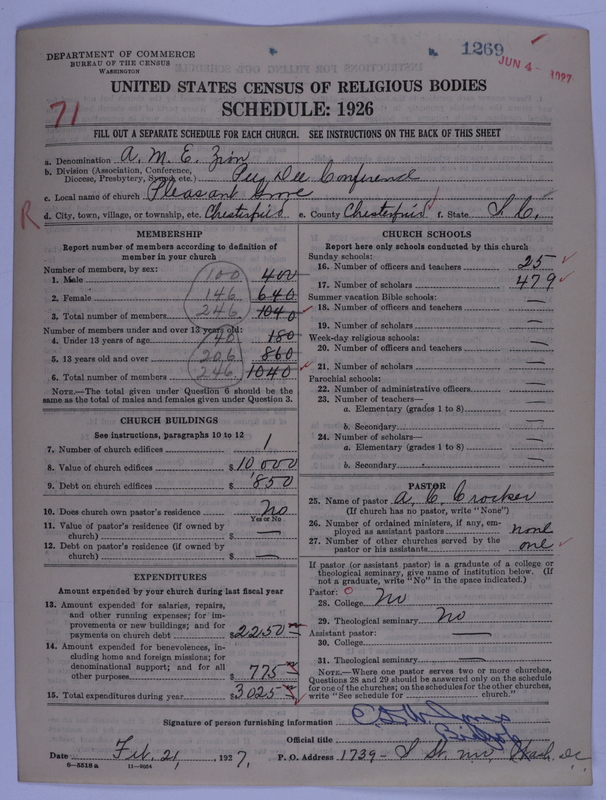 DEPARTMENT OF COMMERCE
BUREAU OF THE CENSUS
WASHINGTON
1269
JUN 4 1927
UNITED STATES CENSUS OF RELIGIOUS BODIES
SCHEDULE: 1926
71
FILL OUT A SEPARATE SCHEDULE FOR EACH CHURCH. SEE INSTRUCTIONS ON THE BACK OF THIS SHEET
a. Denomination A. M. E. Zion
b. Division (Association, Conference, Diocese, Presbytery, Synod, etc.) Pee Dee Conference
c. Local name of church Pleasant Grove
R
d. City, town, village, or township, etc. Chesterfield e. County Chesterfield f. State S. C.
MEMBERSHIP
Report number of members according to definition of member in your church
Number of members, by sex:
1. Male 100 400
2. Female 146 640
3. Total number of members 246 1040
Number of members under and over 13 years old:
4. Under 13 years of age 40 180
5. 13 years old and over 206 860
6. Total number of members 246 1040
NOTE.—The total given under Question 6 should be the same as the total of males and females given under Question 3.
CHURCH BUILDINGS
See instructions, paragraphs 10 to 12
7. Number of church edifices 1
8. Value of church edifices $10,000
9. Debt on church edifices $850
10. Does church own pastor's residence No
Yes or No
11. Value of pastor's residence (if owned by church) $ —
12. Debt on pastor's residence (if owned by church) $ —
EXPENDITURES
Amount expended by your church during last fiscal year
13. Amount expended for salaries, repairs, and other running expenses; for improvements or new buildings; and for payments on church debt $2250
14. Amount expended for benevolences, including home and foreign missions; for denominational support; and for all other purposes $775
15. Total expenditures during year $3025
CHURCH SCHOOLS
Report here only schools conducted by this church
Sunday schools:
16. Number of officers and teachers 25
17. Number of scholars 479
Summer vacation Bible schools:
18. Number of officers and teachers —
19. Number of scholars —
Week-day religious schools:
20. Number of officers and teachers —
21. Number of scholars —
Parochial schools:
22. Number of administrative officers —
23. Number of teachers—
a. Elementary (grades 1 to 8) —
b. Secondary —
24. Number of scholars—
a. Elementary (grades 1 to 8) —
b. Secondary —
PASTOR
25. Name of pastor A. C. Crocker
(If church has no pastor, write "None")
26. Number of ordained ministers, if any, employed as assistant pastors none
27. Number of other churches served by the pastor or his assistants one
If pastor (or assistant pastor) is a graduate of a college or theological seminary, give name of institution below. (If not a graduate, write "No" in the space indicated.)
Pastor:
28. College No
29. Theological seminary No
Assistant pastor: —
30. College
31. Theological seminary —
NOTE.—Where one pastor serves two or more churches, Questions 28 and 29 should be answered only on the schedule for one of the churches; on the schedules for the other churches, write "See schedule for church."
Signature of person furnishing information
Official title Bishop
Date Feb. 21, 1927. P. O. Address 1739- S St. NW, Wash. DC
8—5518 a 11—9054